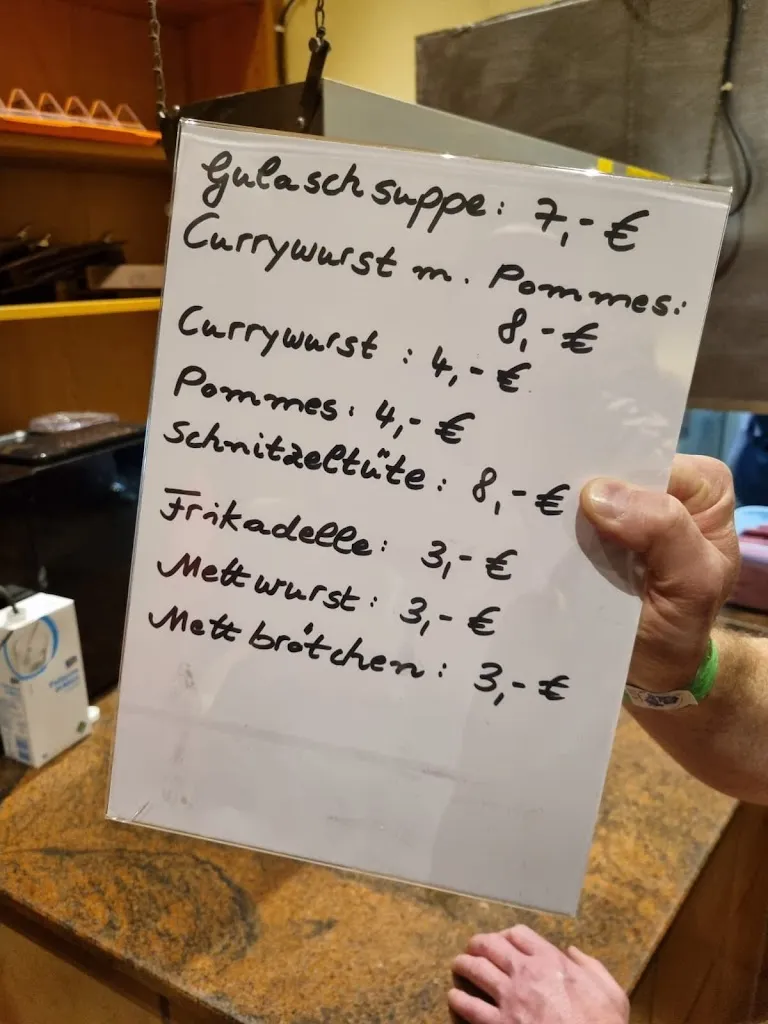 Gulaschsuppe: 7,- €
Currywurst m. Pommes:
8,- €
Currywurst : 4,- €
Pommes: 4,- €
Schnitzeltüte: 8,- €
Frikadelle: 3,- €
Mettwurst: 3,- €
Mettbrötchen: 3,- €